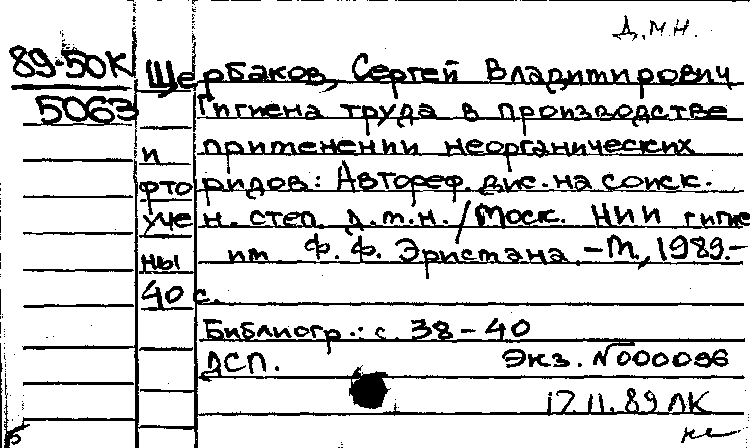 Д.М.Н.
89-50К
5063
Щербаков, Сергей Владимирович
Гигиена труда в производстве
и применении неорганических
фторидов: Автореф. дис. на соиск.
учен. степ. д.м.н. / Моск. НИИ гигие
ны им. Ф. Ф. Эрисмана. - М., 1989. -
40 с.
Библиогр.: с. 38-40
ДСП. Экз. №000096
17.11.89 ЛК